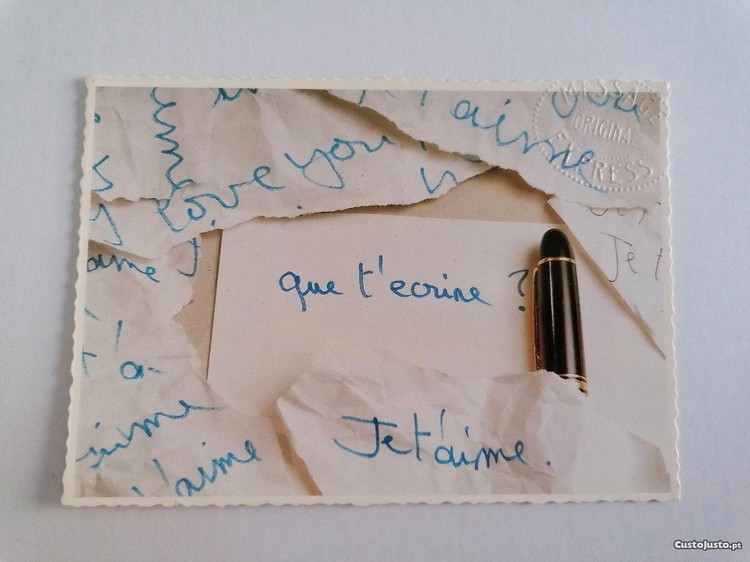 t'aime
I love you
MESSAGE
ORIGINAL
EXPRESS
aime J
Je t
que t'ecrire ?
t'a-
aime
Je t'aime.
t'aime
CustoJusto.pt